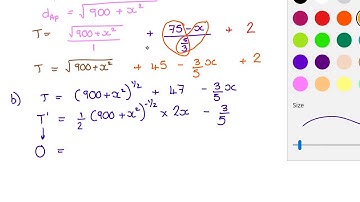 d_AP = √900 + x²
T = √900 + x² / 1 + 75 - x / 5/3 + 2
T = √900+x² + 45 - 3/5 x + 2
b) T = (900 + x²)^1/2 + 47 - 3/5 x
T' = 1/2 (900 + x²)^-1/2 × 2x - 3/5
↓
0 =
Size